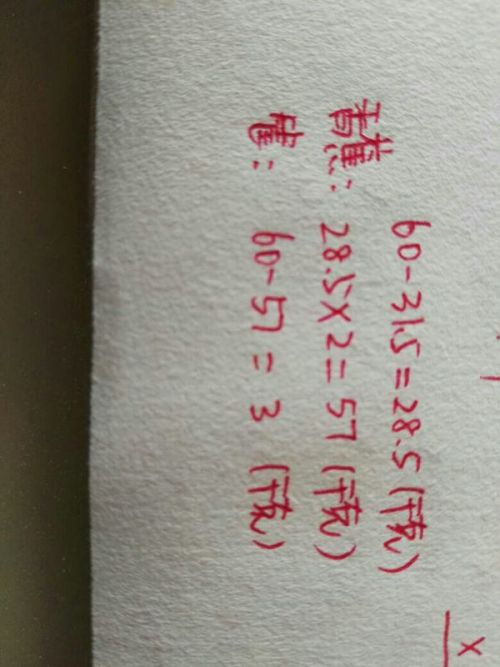 60-31.5=28.5(千克)
香蕉: 28.5×2=57(千克)
筐: 60-57=3 (千克)
×